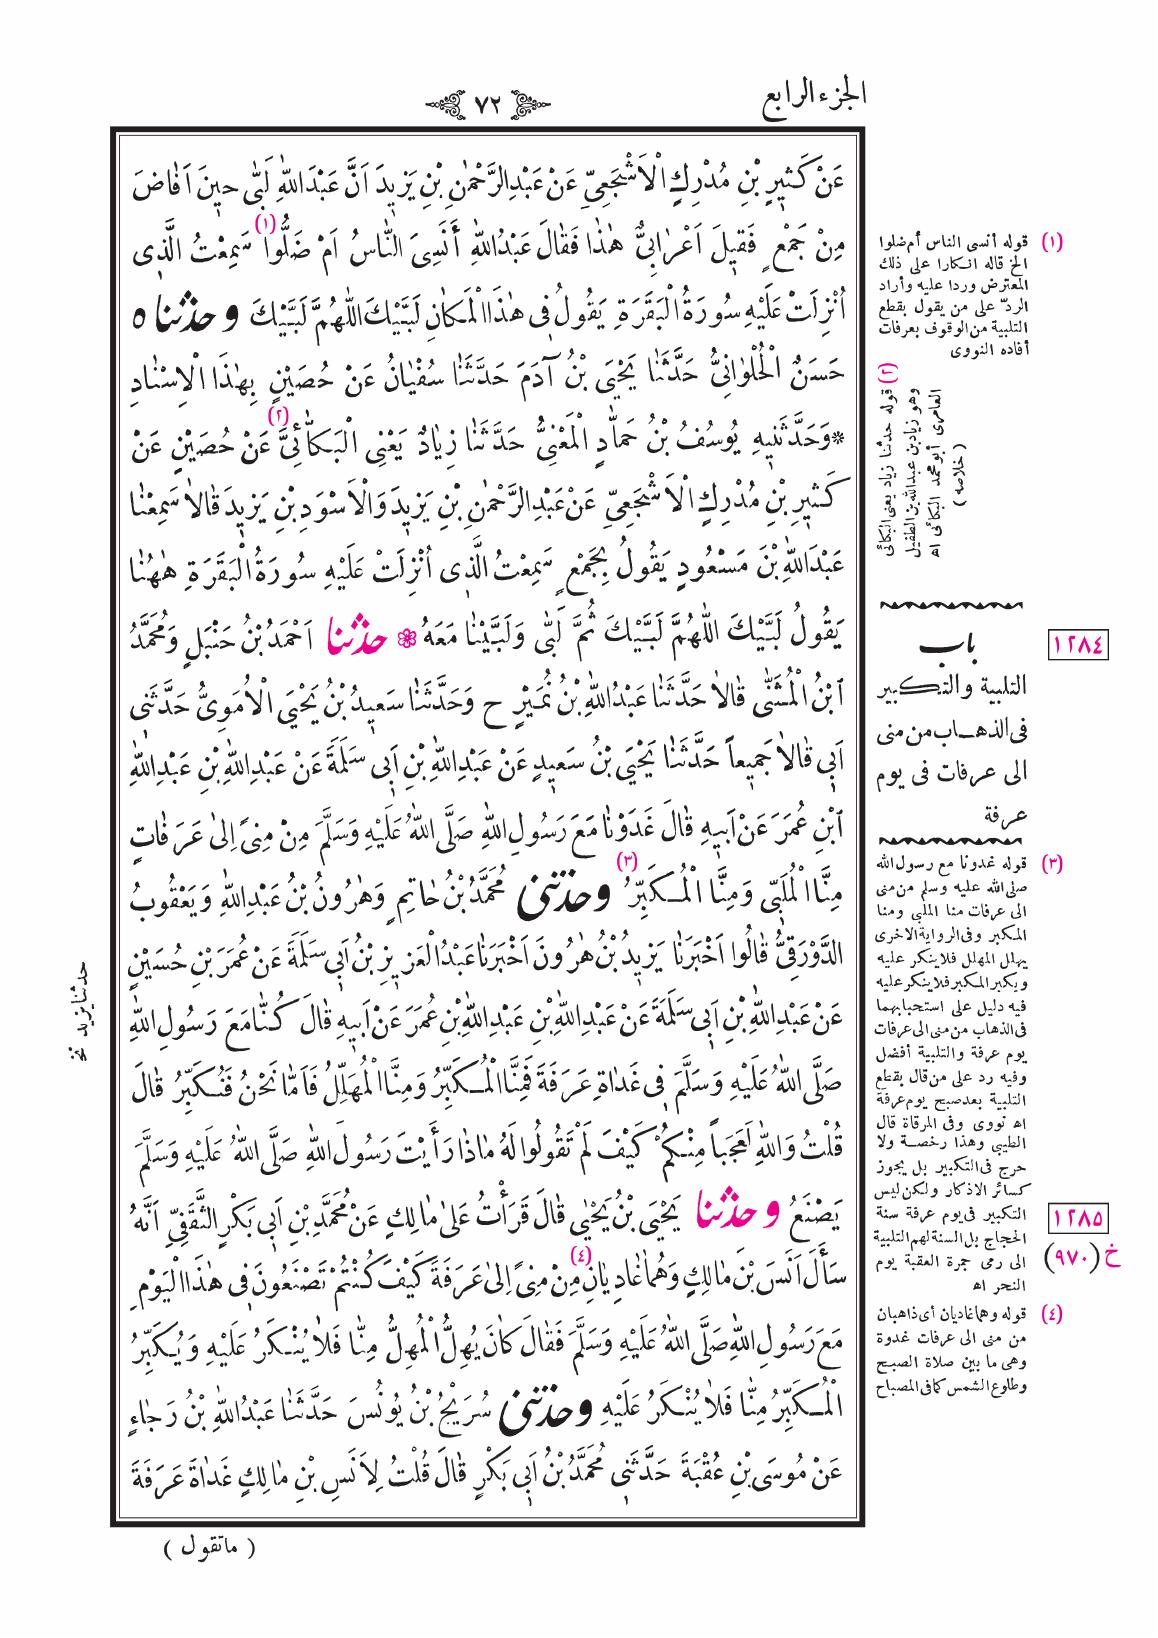 الجزء الرابع
٧٢
عَنْ كَثِيرِ بْنِ مُدْرِكٍ الْاَشْجَعِيِّ عَنْ عَبْدِالرَّحْمٰنِ بْنِ يَزِيدَ اَنَّ عَبْدَاللّٰهِ لَبّٰى حِينَ اَفَاضَ
مِنْ جَمْعٍ فَقِيلَ اَعْرَابِىٌّ هٰذَا فَقَالَ عَبْدُاللّٰهِ أَنَسِىَ النَّاسُ اَمْ ضَلُّوا (١) سَمِعْتُ الَّذِى
اُنْزِلَتْ عَلَيْهِ سُورَةُ الْبَقَرَةِ يَقُولُ فِى هٰذَا الْمَكَانِ لَبَّيْكَ اللّٰهُمَّ لَبَّيْكَ وحدثنا ٥
حَسَنٌ الْحُلْوَانِىُّ حَدَّثَنَا يَحْيَى بْنُ آدَمَ حَدَّثَنَا سُفْيَانُ عَنْ حُصَيْنٍ بِهٰذَا الْاِسْنَادِ
* وَحَدَّثَنِيهِ يُوسُفُ بْنُ حَمَّادٍ الْمَعْنِىُّ حَدَّثَنَا زِيَادٌ يَعْنِى الْبَكَّائِىَّ (٢) عَنْ حُصَيْنٍ عَنْ
كَثِيرِ بْنِ مُدْرِكٍ الْاَشْجَعِيِّ عَنْ عَبْدِالرَّحْمٰنِ بْنِ يَزِيدَ وَالْاَسْوَدِ بْنِ يَزِيدَ قَالَا سَمِعْنَا
عَبْدَاللّٰهِ بْنَ مَسْعُودٍ يَقُولُ بِجَمْعٍ سَمِعْتُ الَّذِى اُنْزِلَتْ عَلَيْهِ سُورَةُ الْبَقَرَةِ هٰهُنَا
يَقُولُ لَبَّيْكَ اللّٰهُمَّ لَبَّيْكَ ثُمَّ لَبّٰى وَلَبَّيْنَا مَعَهُ ❀ حدثنا اَحْمَدُ بْنُ حَنْبَلٍ وَمُحَمَّدُ
ابْنُ الْمُثَنّٰى قَالَا حَدَّثَنَا عَبْدُاللّٰهِ بْنُ نُمَيْرٍ ح وَحَدَّثَنَا سَعِيدُ بْنُ يَحْيَى الْاُمَوِىُّ حَدَّثَنِى
اَبِى قَالَا جَمِيعاً حَدَّثَنَا يَحْيَى بْنُ سَعِيدٍ عَنْ عَبْدِاللّٰهِ بْنِ اَبِى سَلَمَةَ عَنْ عَبْدِاللّٰهِ بْنِ عَبْدِاللّٰهِ
ابْنِ عُمَرَ عَنْ اَبِيهِ قَالَ غَدَوْنَا مَعَ رَسُولِ اللّٰهِ صَلَّى اللّٰهُ عَلَيْهِ وَسَلَّمَ مِنْ مِنىً اِلىٰ عَرَفَاتٍ
مِنَّا الْمُلَبِّى وَمِنَّا الْمُكَبِّرُ (٣) وحدثنى مُحَمَّدُ بْنُ حَاتِمٍ وَهٰرُونُ بْنُ عَبْدِاللّٰهِ وَيَعْقُوبُ
الدَّوْرَقِىُّ قَالُوا اَخْبَرَنَا يَزِيدُ بْنُ هٰرُونَ اَخْبَرَنَا عَبْدُالْعَزِيزِ بْنُ اَبِى سَلَمَةَ عَنْ عُمَرَ بْنِ حُسَيْنٍ
عَنْ عَبْدِاللّٰهِ بْنِ اَبِى سَلَمَةَ عَنْ عَبْدِاللّٰهِ بْنِ عَبْدِاللّٰهِ بْنِ عُمَرَ عَنْ اَبِيهِ قَالَ كُنَّا مَعَ رَسُولِ اللّٰهِ
صَلَّى اللّٰهُ عَلَيْهِ وَسَلَّمَ فِى غَدَاةِ عَرَفَةَ فَمِنَّا الْمُكَبِّرُ وَمِنَّا الْمُهَلِّلُ فَاَمَّا نَحْنُ فَنُكَبِّرُ قَالَ
قُلْتُ وَاللّٰهِ لَعَجَباً مِنْكُمْ كَيْفَ لَمْ تَقُولُوا لَهُ مَاذَا رَأَيْتَ رَسُولَ اللّٰهِ صَلَّى اللّٰهُ عَلَيْهِ وَسَلَّمَ
يَصْنَعُ وحدثنا يَحْيَى بْنُ يَحْيٰى قَالَ قَرَأْتُ عَلىٰ مَالِكٍ عَنْ مُحَمَّدِ بْنِ اَبِى بَكْرٍ الثَّقَفِىِّ اَنَّهُ
سَأَلَ اَنَسَ بْنَ مَالِكٍ وَهُمَا غَادِيَانِ (٤) مِنْ مِنىً اِلىٰ عَرَفَةَ كَيْفَ كُنْتُمْ تَصْنَعُونَ فِى هٰذَا الْيَوْمِ
مَعَ رَسُولِ اللّٰهِ صَلَّى اللّٰهُ عَلَيْهِ وَسَلَّمَ فَقَالَ كَانَ يُهِلُّ الْمُهِلُّ مِنَّا فَلَا يُنْكَرُ عَلَيْهِ وَيُكَبِّرُ
الْمُكَبِّرُ مِنَّا فَلَا يُنْكَرُ عَلَيْهِ وحدثنى سُرَيْجُ بْنُ يُونُسَ حَدَّثَنَا عَبْدُاللّٰهِ بْنُ رَجَاءٍ
عَنْ مُوسَى بْنِ عُقْبَةَ حَدَّثَنِى مُحَمَّدُ بْنُ اَبِى بَكْرٍ قَالَ قُلْتُ لِاَنَسِ بْنِ مَالِكٍ غَدَاةَ عَرَفَةَ
( ماتقول )
(١) قوله أنسى الناس أم ضلوا
الخ قاله انكارا على ذلك
المعترض وردا عليه وأراد
الردّ على من يقول بقطع
التلبية من الوقوف بعرفات
أفاده النووى
(٢) قوله حدثنا زياد يعنى البكائى
وهو زياد بن عبدالله بن الطفيل
العامرى أبو محمد البكائى اه
( خلاصه )
١٢٨٤
باب
التلبية والتكبير
فى الذهاب من منى
الى عرفات فى يوم
عرفة
(٣) قوله غدونا مع رسول الله
صلى الله عليه وسلم من منى
الى عرفات منا الملبى ومنا
المكبر وفى الرواية الاخرى
يهلل المهلل فلا ينكر عليه
ويكبر المكبر فلا ينكر عليه
فيه دليل على استحبابهما
فى الذهاب من منى الى عرفات
يوم عرفة والتلبية أفضل
وفيه رد على من قال بقطع
التلبية بعد صبح يوم عرفة
اه نووى وفى المرقاة قال
الطيبى وهذا رخصة ولا
حرج فى التكبير بل يجوز
كسائر الاذكار ولكن ليس
التكبير فى يوم عرفة سنة
الحجاج بل السنة لهم التلبية
الى رمى جمرة العقبة يوم
النحر اه
١٢٨٥
خ (٩٧٠)
(٤) قوله وهما غاديان أى ذاهبان
من منى الى عرفات غدوة
وهى ما بين صلاة الصبح
وطلوع الشمس كما فى المصباح
حدثنا يزيد نخ